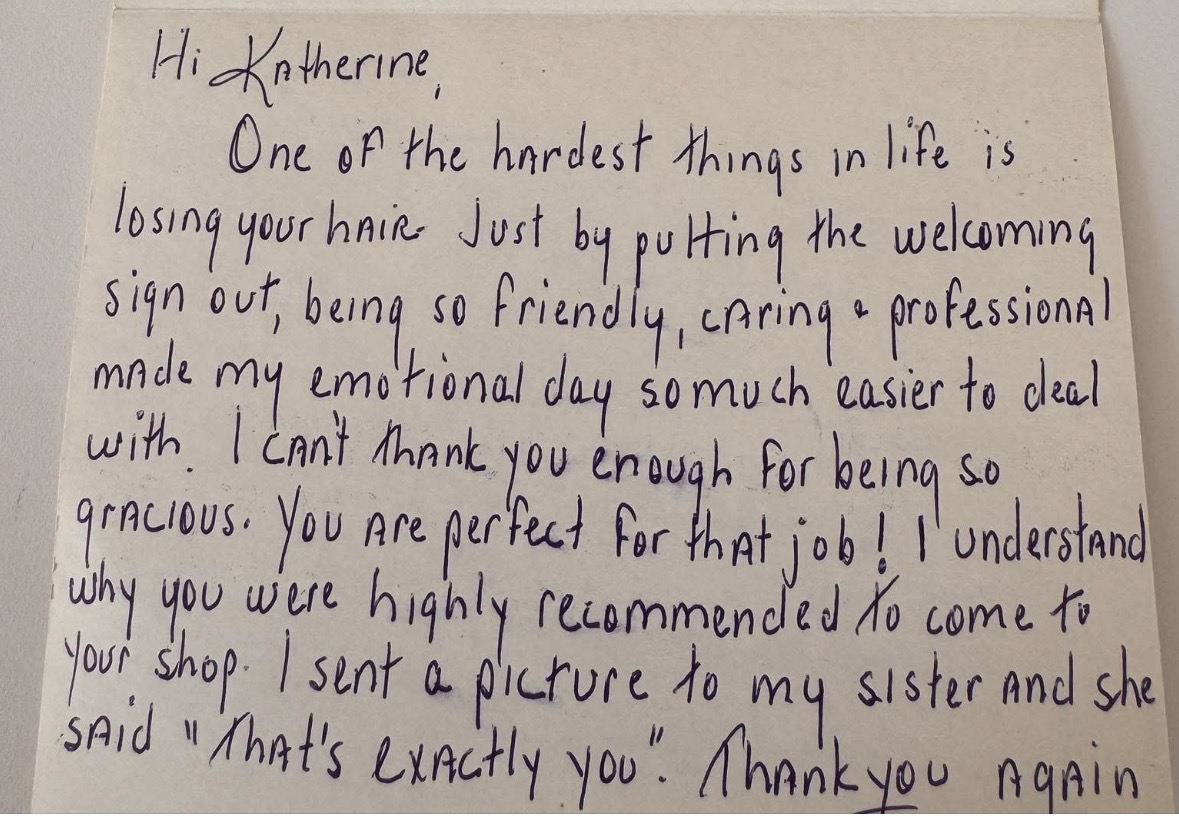 Hi Katherine,
One of the hardest things in life is
losing your hair. Just by putting the welcoming
sign out, being so friendly, caring & professional
made my emotional day so much easier to deal
with. I can't thank you enough for being so
gracious. You are perfect for that job! I understand
why you were highly recommended to come to
your shop. I sent a picture to my sister and she
said "That's exactly you". Thank you again